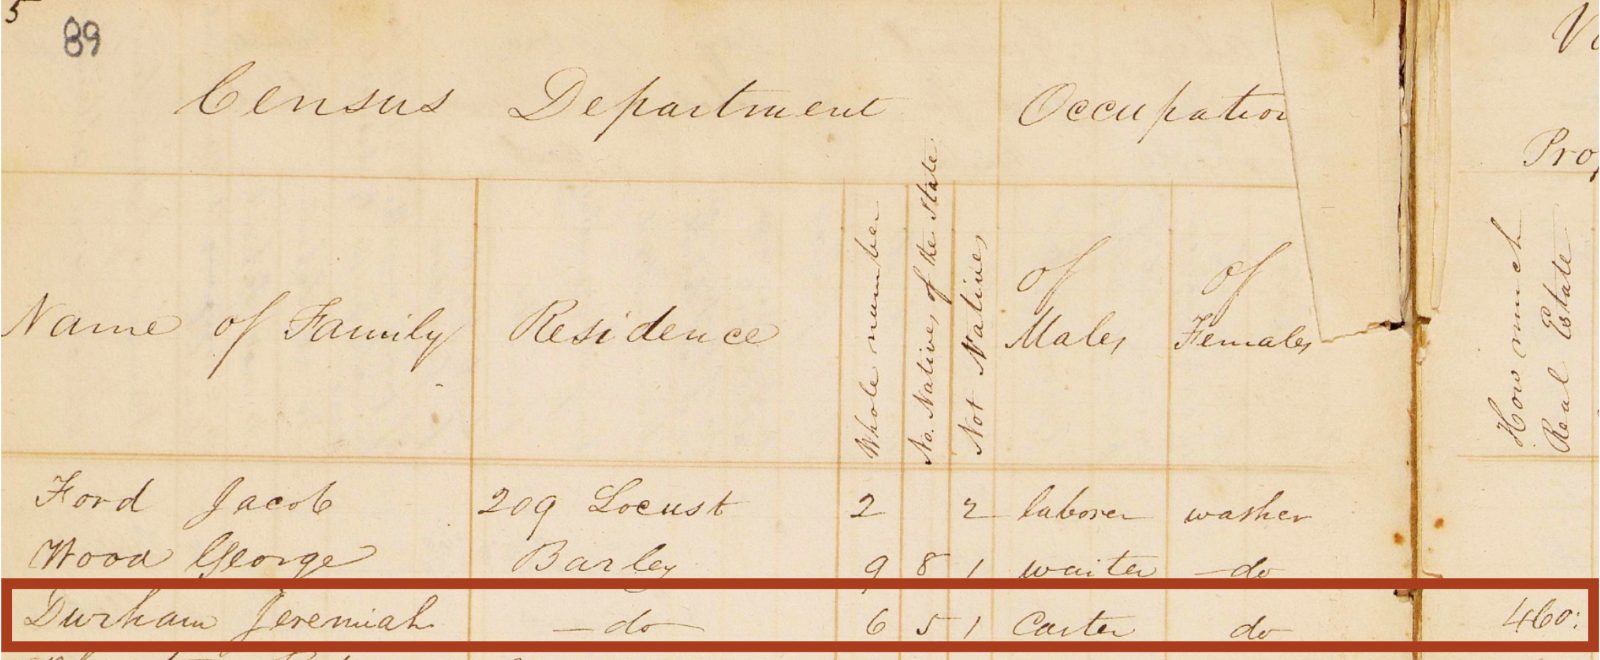 5
89
Census Department Occupation
Pro
Name of Family Residence Whole number No. Natives of the State Not Natives of Males of Females How much Real Estate
Ford Jacob 209 Locust 2 2 laborer washer
Wood George Barley 9 8 1 waiter do
Durham Jeremiah do 6 5 1 Carter do 460: